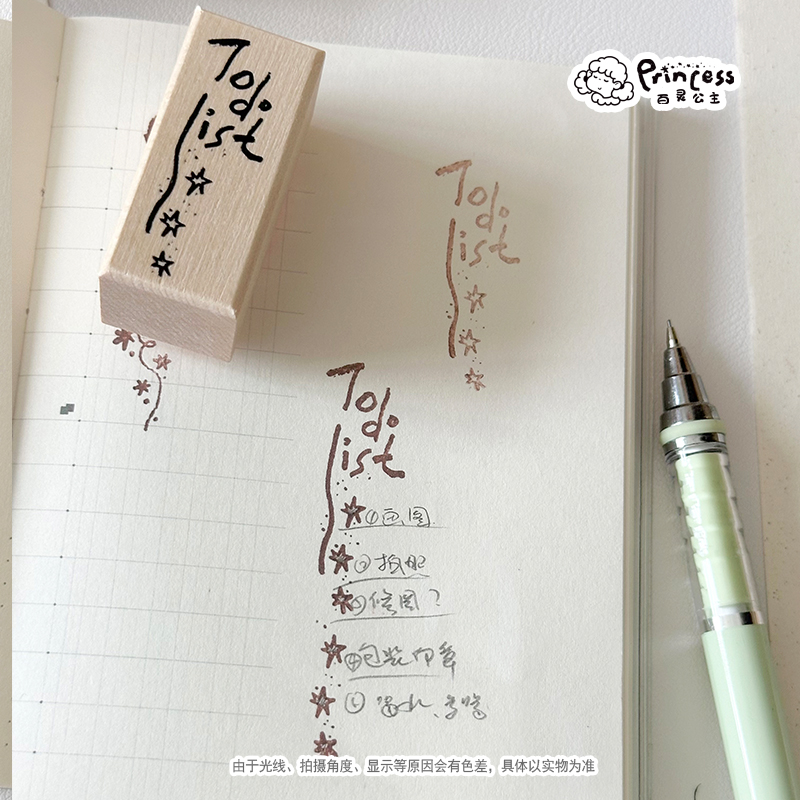 Princess
百灵公主
To
do
list
To
do
list
To
do
list
①画图
②拍照
③修图?
④包装印章
⑤喝水、
由于光线、拍摄角度、显示等原因会有色差，具体以实物为准